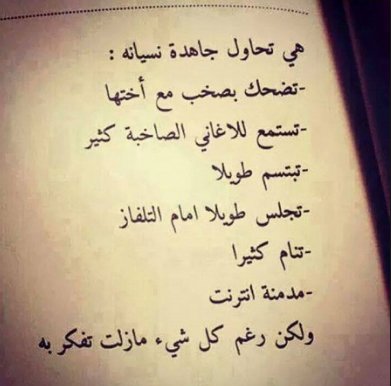 هي تحاول جاهدة نسيانه :
-تضحك بصخب مع أختها
-تستمع للاغاني الصاخبة كثير
-تبتسم طويلا
-تجلس طويلا امام التلفاز
-تنام كثيرا
-مدمنة انترنت
ولكن رغم كل شيء مازلت تفكر به